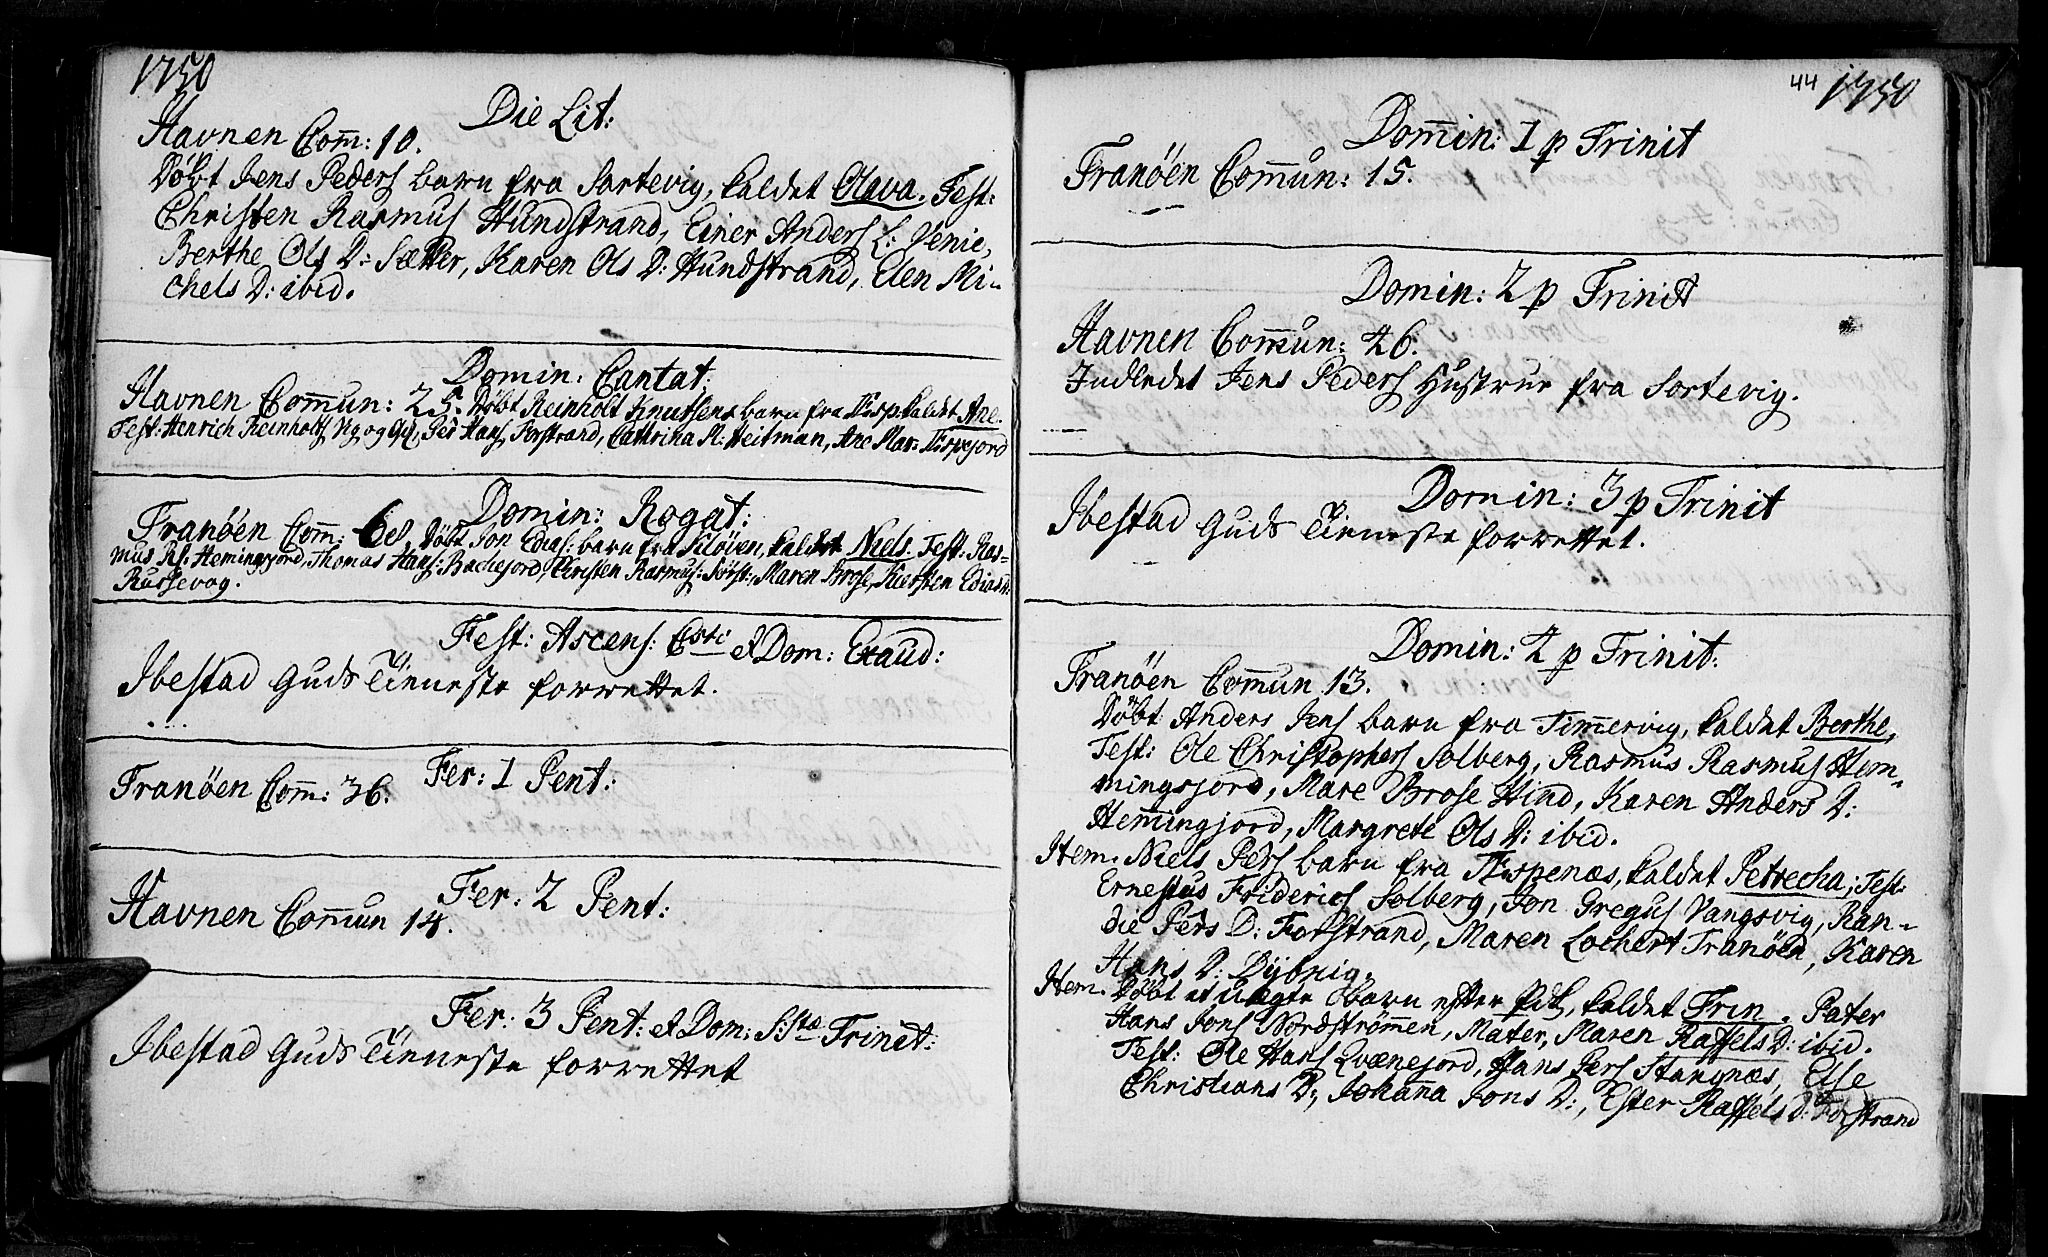 1750
Die Lit:
Havnen Com̄: 10.
Döbt Jens Peders barn fra Sortevig, kaldet Olava. Test:
Christen Rasmus Hundstrand, Einer Anders S: Venie,
Berthe Ols D: Sætter, Karen Ols D: Hundstrand, Elen Mi-
chels D: ibid.
Domin: Cantat:
Havnen Com̄un: 25. Döbt Reinholt Knutsens barn fra kaldet Ane.
Test: Henrich Reinholts Ng og Per Hans Forstrand, Cathrina M: Heitman, Ane Mar:
Domin: Rogat:
Tranöen Com̄: 68. Döbt Jon Edias: barn fra Klöven, kaldet Niels. Test: Ras-
mus Hemingsjord, Thomas Hans: Bachejord, Christen Rasmus: Maren Brose, Kiersten Edias D:
Russevog.
Fest: Ascens: Csti et Dom: Exaud:
Ibestad Guds Tienneste forrettet.
Fer: 1 Pent:
Tranöen Com̄: 36.
Fer: 2 Pent:
Havnen Com̄un 14.
Fer: 3 Pent: et Dom: S:Stæ Trinit:
Ibestad Guds Tienneste forrettet
44 1750
Dom̄in: 1 p Trinit
Tranöen Com̄un: 15.
Domin: 2 p Trinit
Havnen Com̄un: 46.
Indledet Jens Peders Hustrue fra Sortevig.
Domin: 3 p Trinit
Ibestad Guds Tienneste forrettet.
Domin: 4 p Trinit:
Tranöen Com̄un 13.
Döbt Anders Jens barn fra Tim̄ervig, kaldet Berthe,
Test: Ole Christophers Solberg, Rasmus Rasmus Hem-
mingsjord, Mare Brose Hind, Karen Anders D:
Hem̄ingjord, Margrete Ols D: ibid.
Item. Niels Pers barn fra Tespenæs, kaldet Petrecha; Test:
Ernestus Friderics Solberg, Jon Gregus Vangsvig, Ran-
die Pers D: Forstrand, Maren Lochert Tranöen, Karen
Hans D: Dybvig.
Item. Döbt et uægte barn efter kaldet Trin. Pater
Hans Jons Nordströmmen, Mater, Maren Raffels D: ibid.
Test: Ole Hans Qvænejord, Hans Pers Stangnæs, Else
Christians D:, Johan̄a Jons D:, Ester Raffels D: Forstrand